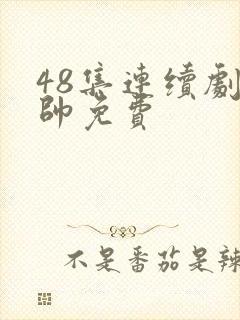 48集連續劇
帥免費
不是番茄是辣